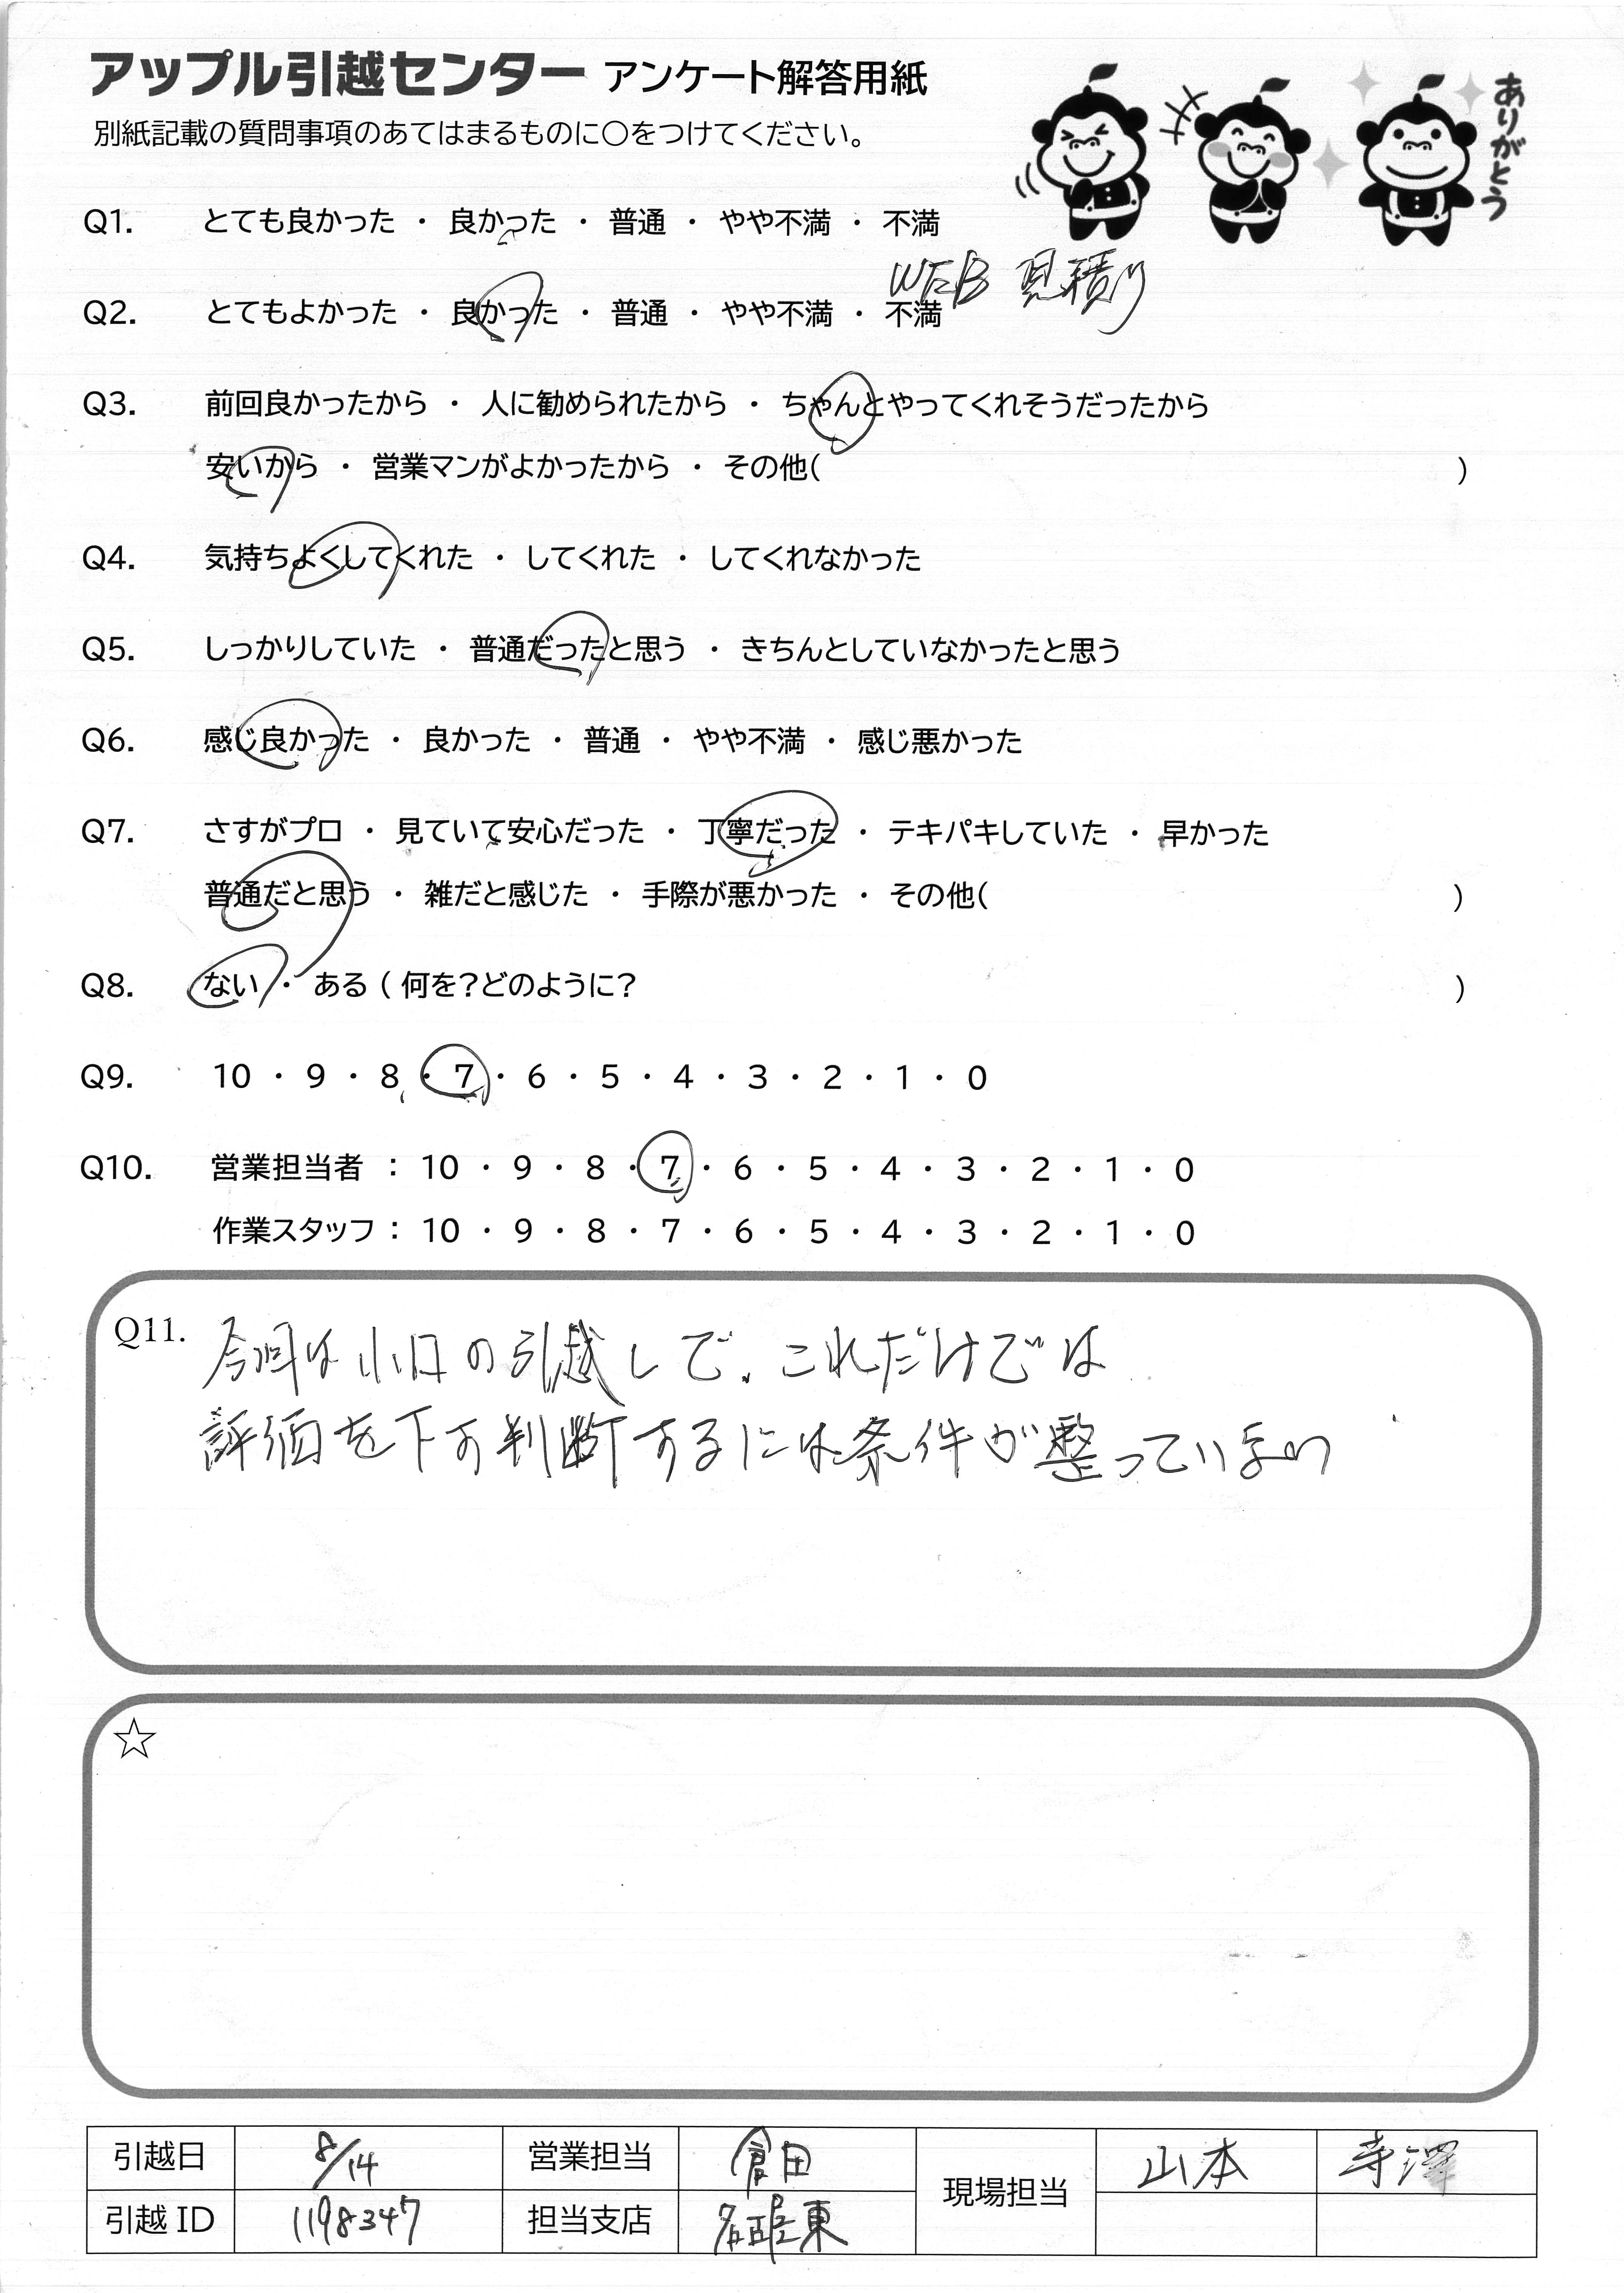 アップル引越センター アンケート解答用紙
別紙記載の質問事項のあてはまるものに○をつけてください。
ありがとう
Q1. とても良かった ・ 良かった ・ 普通 ・ やや不満 ・ 不満
WEB 見積り
Q2. とてもよかった ・ 良かった ・ 普通 ・ やや不満 ・ 不満
Q3. 前回良かったから ・ 人に勧められたから ・ ちゃんとやってくれそうだったから
安いから ・ 営業マンがよかったから ・ その他( )
Q4. 気持ちよくしてくれた ・ してくれた ・ してくれなかった
Q5. しっかりしていた ・ 普通だったと思う ・ きちんとしていなかったと思う
Q6. 感じ良かった ・ 良かった ・ 普通 ・ やや不満 ・ 感じ悪かった
Q7. さすがプロ ・ 見ていて安心だった ・ 丁寧だった ・ テキパキしていた ・ 早かった
普通だと思う ・ 雑だと感じた ・ 手際が悪かった ・ その他( )
Q8. ない ・ ある ( 何を?どのように? )
Q9. 10 ・ 9 ・ 8 ・ 7 ・ 6 ・ 5 ・ 4 ・ 3 ・ 2 ・ 1 ・ 0
Q10. 営業担当者 : 10 ・ 9 ・ 8 ・ 7 ・ 6 ・ 5 ・ 4 ・ 3 ・ 2 ・ 1 ・ 0
作業スタッフ : 10 ・ 9 ・ 8 ・ 7 ・ 6 ・ 5 ・ 4 ・ 3 ・ 2 ・ 1 ・ 0
Q11. 今回は小口の引越しで、これだけでは
評価を下す判断するには条件が整っていまい
☆
引越日 8/14 営業担当 倉田 現場担当 山本 寺澤
引越ID 1198347 担当支店 名古屋東